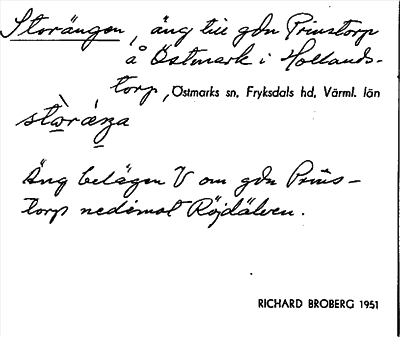 Storängen, äng till gdn Prinstorp
å Östmark i Hollands-
torp, Östmarks sn, Fryksdals hd, Värml. län
stòrä́ŋa
Äng belägen V om gdn Prins-
torp nedemot Röjdälven.
RICHARD BROBERG 1951